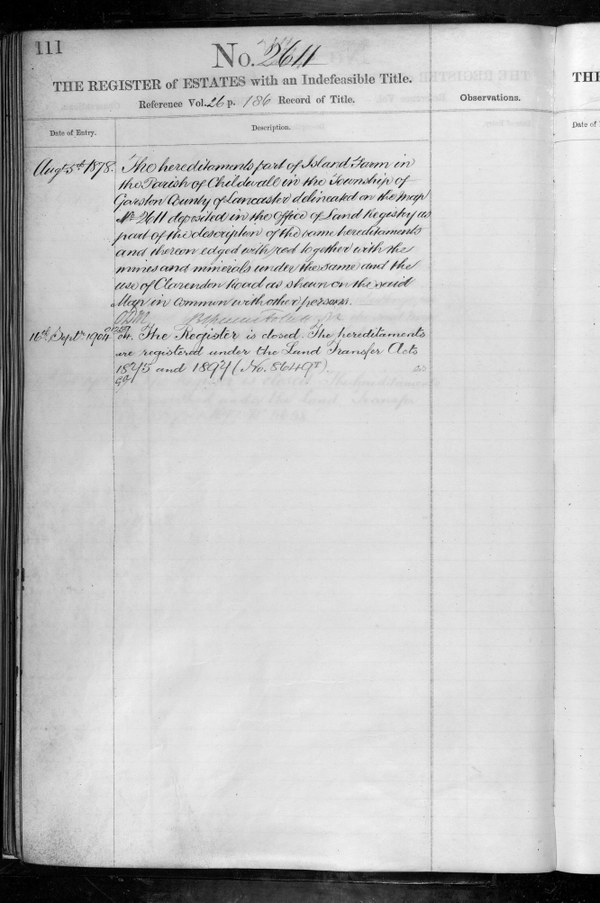 111
No. 2611
THE REGISTER of ESTATES with an Indefeasible Title.
Reference Vol. 26 p. 186 Record of Title.
Observations.
Date of Entry.
Description.
Augt 5th 1878.
The hereditaments part of Island Farm in
the Parish of Childwall in the Township of
Garston County of Lancaster delineated on the Map
No. 2611 deposited in the Office of Land Registry as
part of the description of the same hereditaments
and thereon edged with red together with the
mines and minerals under the same and the
use of Clarendon Road as shewn on the said
Map in common with other persons.
16th Septr 1904
The Register is closed. The hereditaments
are registered under the Land Transfer Acts
1875 and 1897 (No. 86498).
THE
Date of